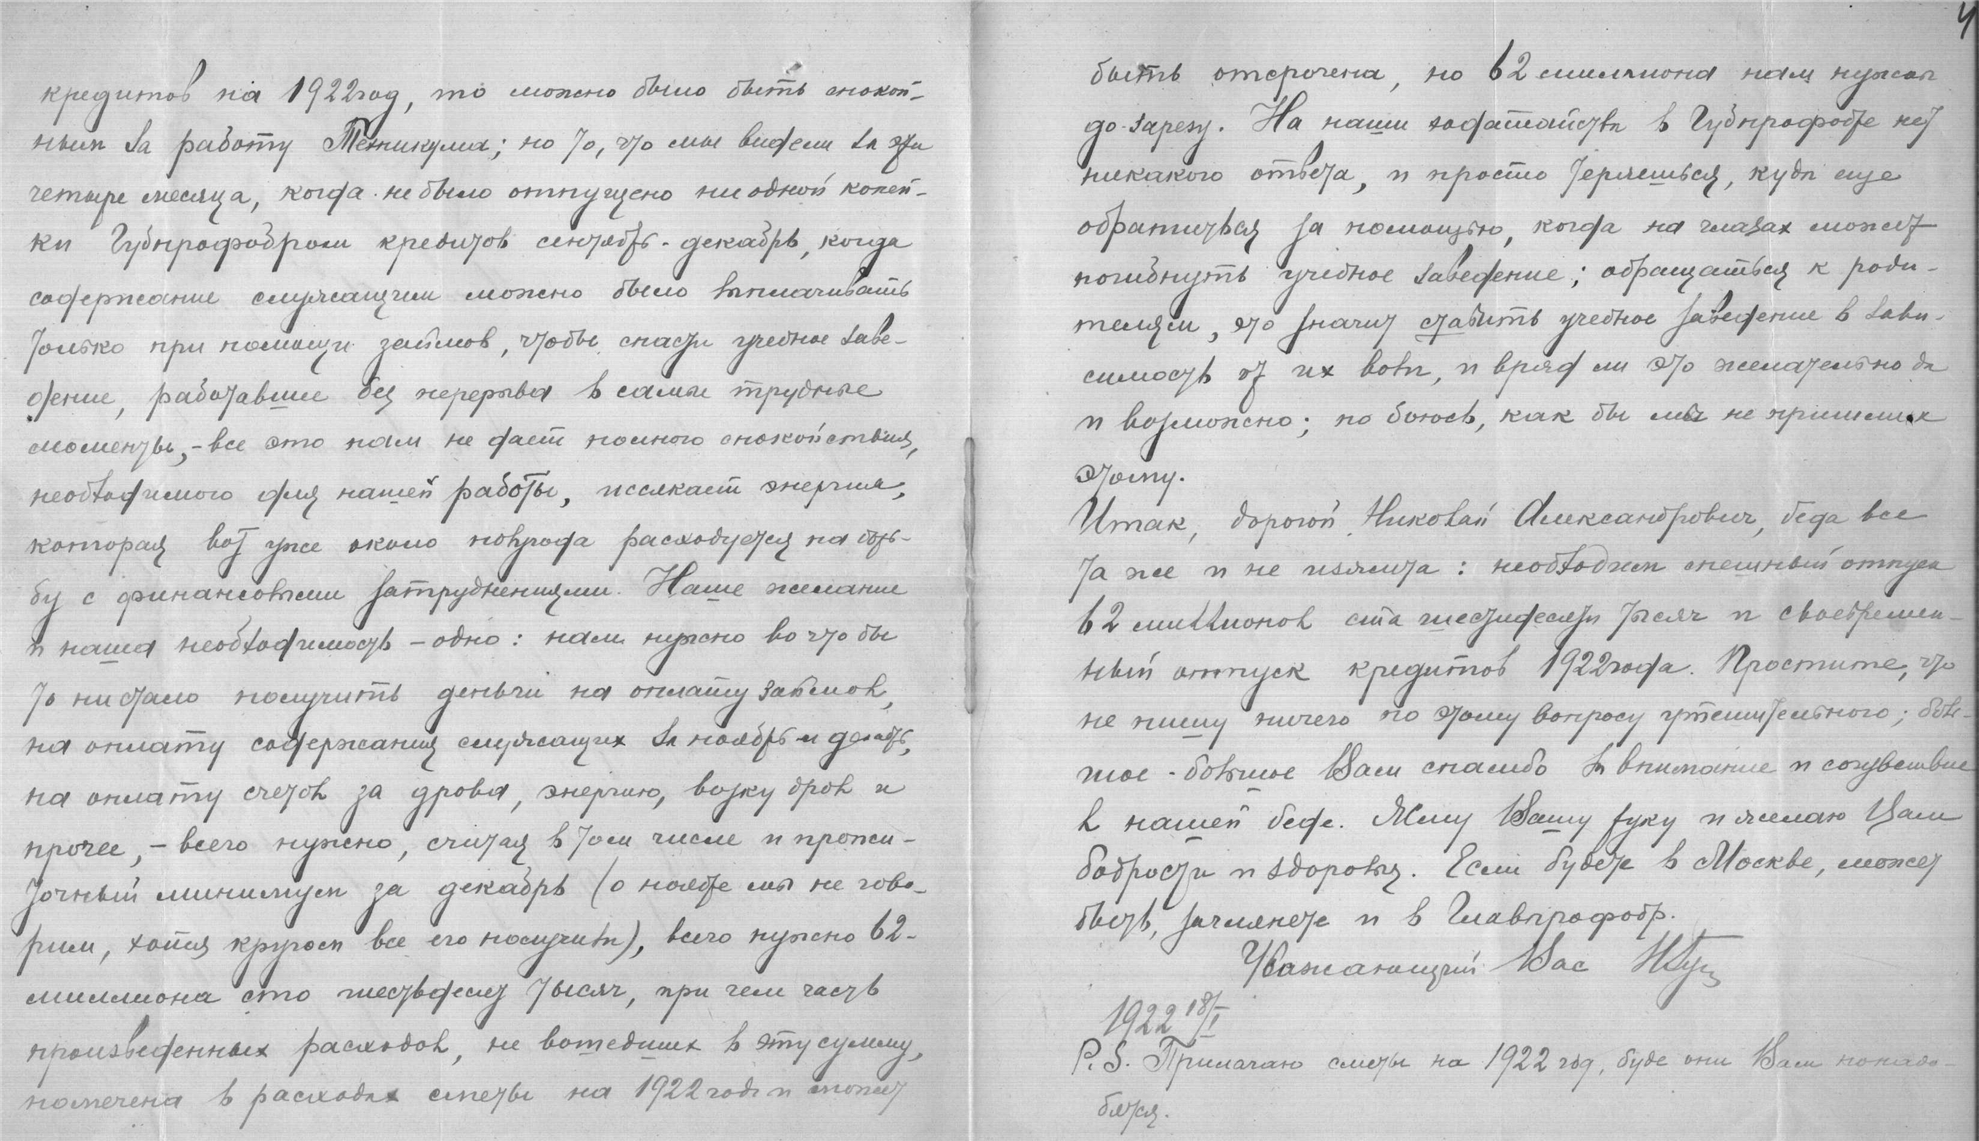 кредитов на 1922 год, то можно было быть спокой-
ным за работу Техникума; но то, что мы видели за эти
четыре месяца, когда не было отпущено ни одной копей-
ки Губпрофобром кредитов сентябрь-декабрь, когда
содержание служащим можно было выплачивать
только при помощи займов, чтобы спасти учебное заве-
дение, работавшее без перерыва в самые трудные
моменты, - все это нам не дает полного спокойствия,
необходимого для нашей работы, иссякает энергия,
которая вот уже около полугода расходуется на борь-
бу с финансовыми затруднениями. Наше желание
и наша необходимость - одно: нам нужно во что бы
то ни стало получить деньги на оплату займов,
на оплату содержания служащих за ноябрь и декабрь,
на оплату счетов за дрова, энергию, возку дров и
прочее, - всего нужно, считая в том числе и прожи-
точный минимум за декабрь (о ноябре мы не гово-
рим, хотя кругом все его получили), всего нужно 62-
миллиона сто шестьдесят тысяч, при чем часть
произведенных расходов, не вошедших в эту сумму,
помечена в расходах сметы на 1922 год и может
4
быть отсрочена, но 62 миллиона нам нужны
до-зарезу. На наши ходатайства в Губпрофобре нет
никакого ответа, и просто теряешься, куда еще
обратиться за помощью, когда на глазах может
погибнуть учебное заведение; обращаться к роди-
телям, это значит ставить учебное заведение в зави-
симость от их воли, и вряд ли это желательно да
и возможно; но боюсь, как бы мы не пришли к
этому.
Итак, дорогой Николай Александрович, беда все
та же и не изжита: необходим спешный отпуск
62 миллионов ста шестидесяти тысяч и своевремен-
ный отпуск кредитов 1922 года. Простите, что
не пишу ничего по этому вопросу утешительного; боль-
шое-большое Вам спасибо за внимание и сочувствие
к нашей беде. Жму Вашу руку и желаю Вам
бодрости и здоровья. Если будете в Москве, может
быть, заглянете и в Главпрофобр.
Уважающий Вас
1922 18/I
P.S. Прилагаю сметы на 1922 год, буде они Вам понадо-
бятся.